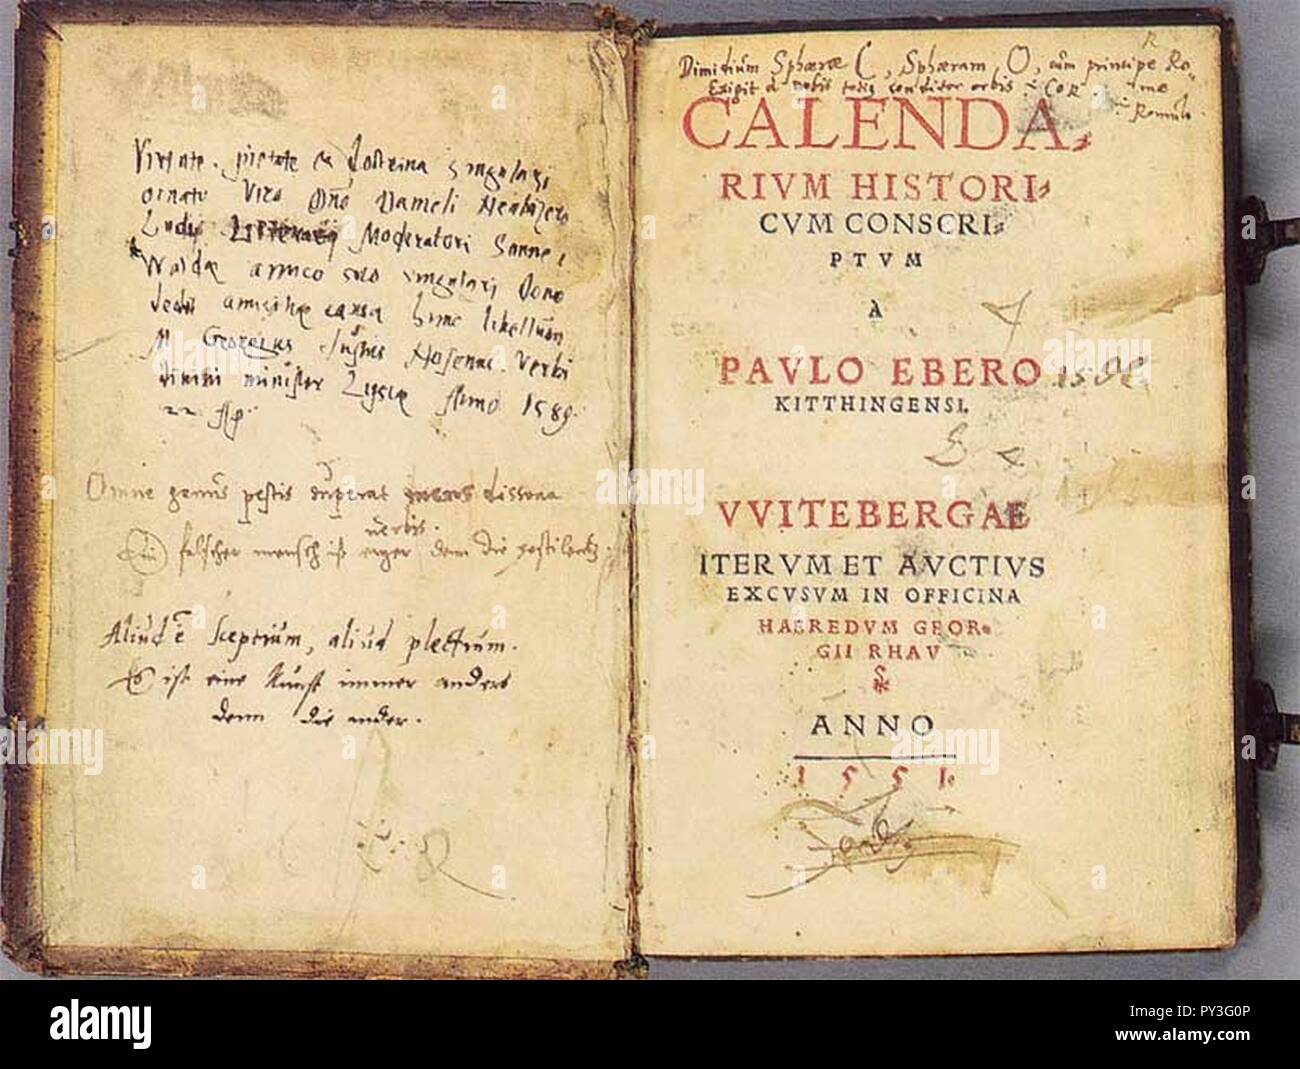 Virtute, pietate et doctrina singulari
ornato Viro Dno Danieli
Ludi Moderatori Sonne,
Waldae amico suo singulari Dono
dedit amicitiae causa hunc libellum
M Georgius Justus Verbi
divini minister Anno 1589.
22
Omne genus pestis superat mens dissona
verbis.
Ein falscher mensch ist erger dem die pestilentz.
Aliud e sceptrum, aliud plectrum.
Es ist eine Kunst immer anders
denn die ander.
Dimidium Sphaerae C, Sphaeram, O, cum principe Ro-
Exigit a nobis totius conditor orbis : COR.
R
mae
Romulo
CALENDA,
RIVM HISTORI,
CVM CONSCRI,
PTVM
A
PAVLO EBERO
KITTHINGENSI.
VVITEBERGAE
ITERVM ET AVCTIVS
EXCVSVM IN OFFICINA
HAEREDVM GEOR,
GII RHAV
ANNO
1551.
alamy
alamy stock photo
PY3G0P
www.alamy.com